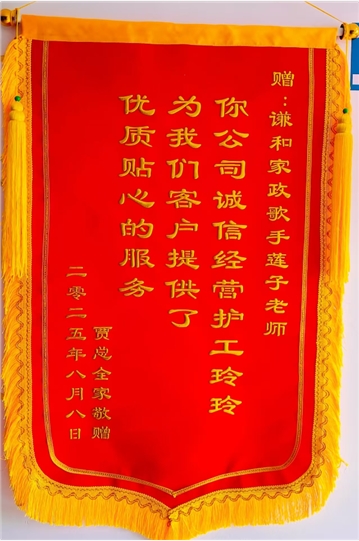 赠：谦和家政歌手莲子老师
你公司诚信经营护工玲玲
为我们客户提供了
优质贴心的服务
贾总全家敬赠
二零二五年八月八日